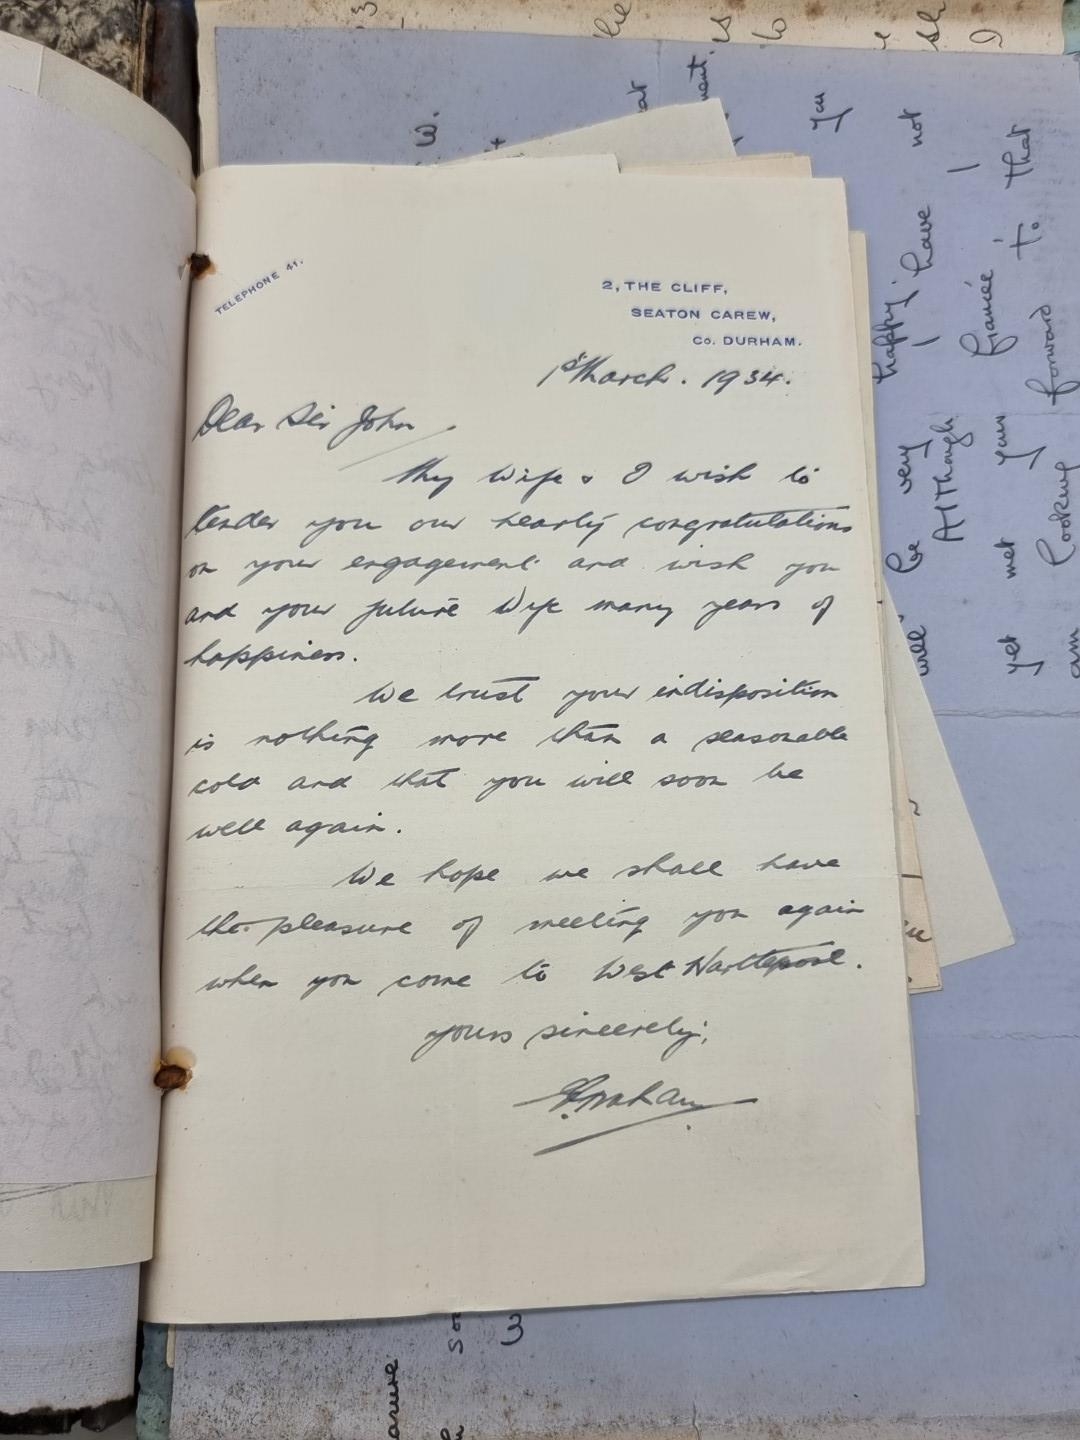 TELEPHONE 41.
2, THE CLIFF,
SEATON CAREW,
Co. DURHAM.
1st March. 1934.
Dear Sir John,
My Wife & I wish to
tender you our hearty congratulations
on your engagement and wish you
and your future Wife many years of
happiness.
We trust your indisposition
is nothing more than a seasonable
cold and that you will soon be
well again.
We hope we shall have
the pleasure of meeting you again
when you come to West Hartlepool.
yours sincerely,
Graham
will be very happy. I have not
Although I
yet met your fiancée
am looking forward to that
you